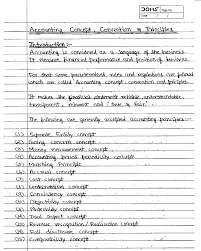 DOMS Page No.
Date / /
Accounting Concept, Convention & Principles
Introduction:-
Accounting is considered as a language of the business.
It measure financial performance and position of business.
For that some predetermined rules and regulations are followed
which are called 'Accounting concept, convention and principles.
It makes the financial statement reliable, understandable,
transparent, relevant and 'true & fair'.
The following are generally accepted accounting principles:-
(1) Separate Entity concept
(2) Going Concern concept
(3) Money measurement concept
(4) Accounting period periodicity concept
(5) Matching Principle
(6) Accrual concept
(7) Cost concept
(8) Conservatism concept
(9) Consistency concept
(10) Objectivity concept
(11) Materiality concept
(12) Dual aspect concept
(13) Revenue recognition / Realisation concept
(14) Full disclosure concept
(15) Comparability concept